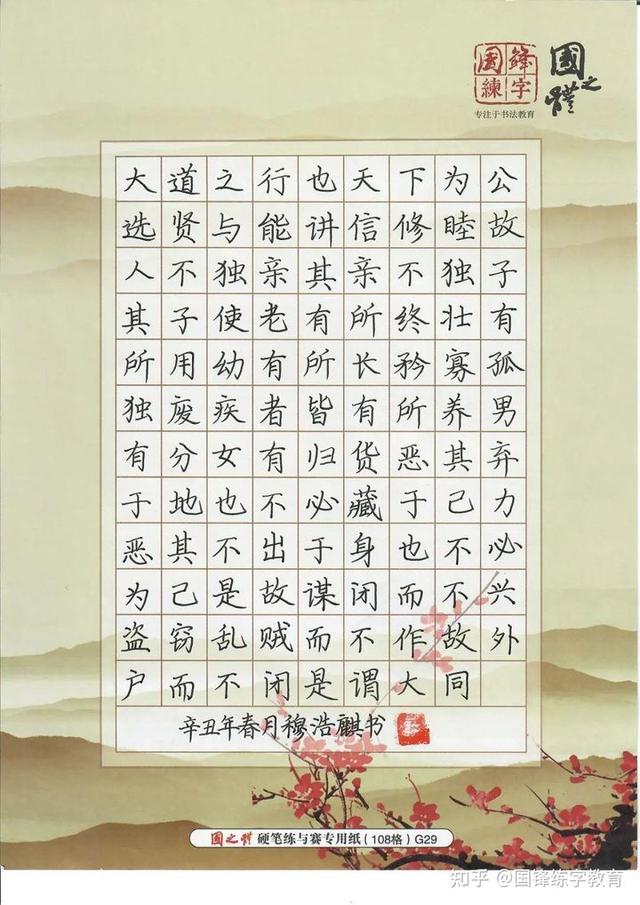 國鋒
練字
國之體
专注于书法教育
大道之行也天下为公
选贤与能讲信修睦故
人不独亲其亲不独子
其子使老有所终壮有
所用幼有所长矜寡孤
独废疾者皆有所养男
有分女有归货恶其弃
于地也不必藏于己力
恶其不出于身也不必
为己是故谋闭而不兴
盗窃乱贼而不作故外
户而不闭是谓大同
辛丑年春月穆浩麒书
國之體 硬笔练与赛专用纸(108格) G29
知乎 @国锋练字教育